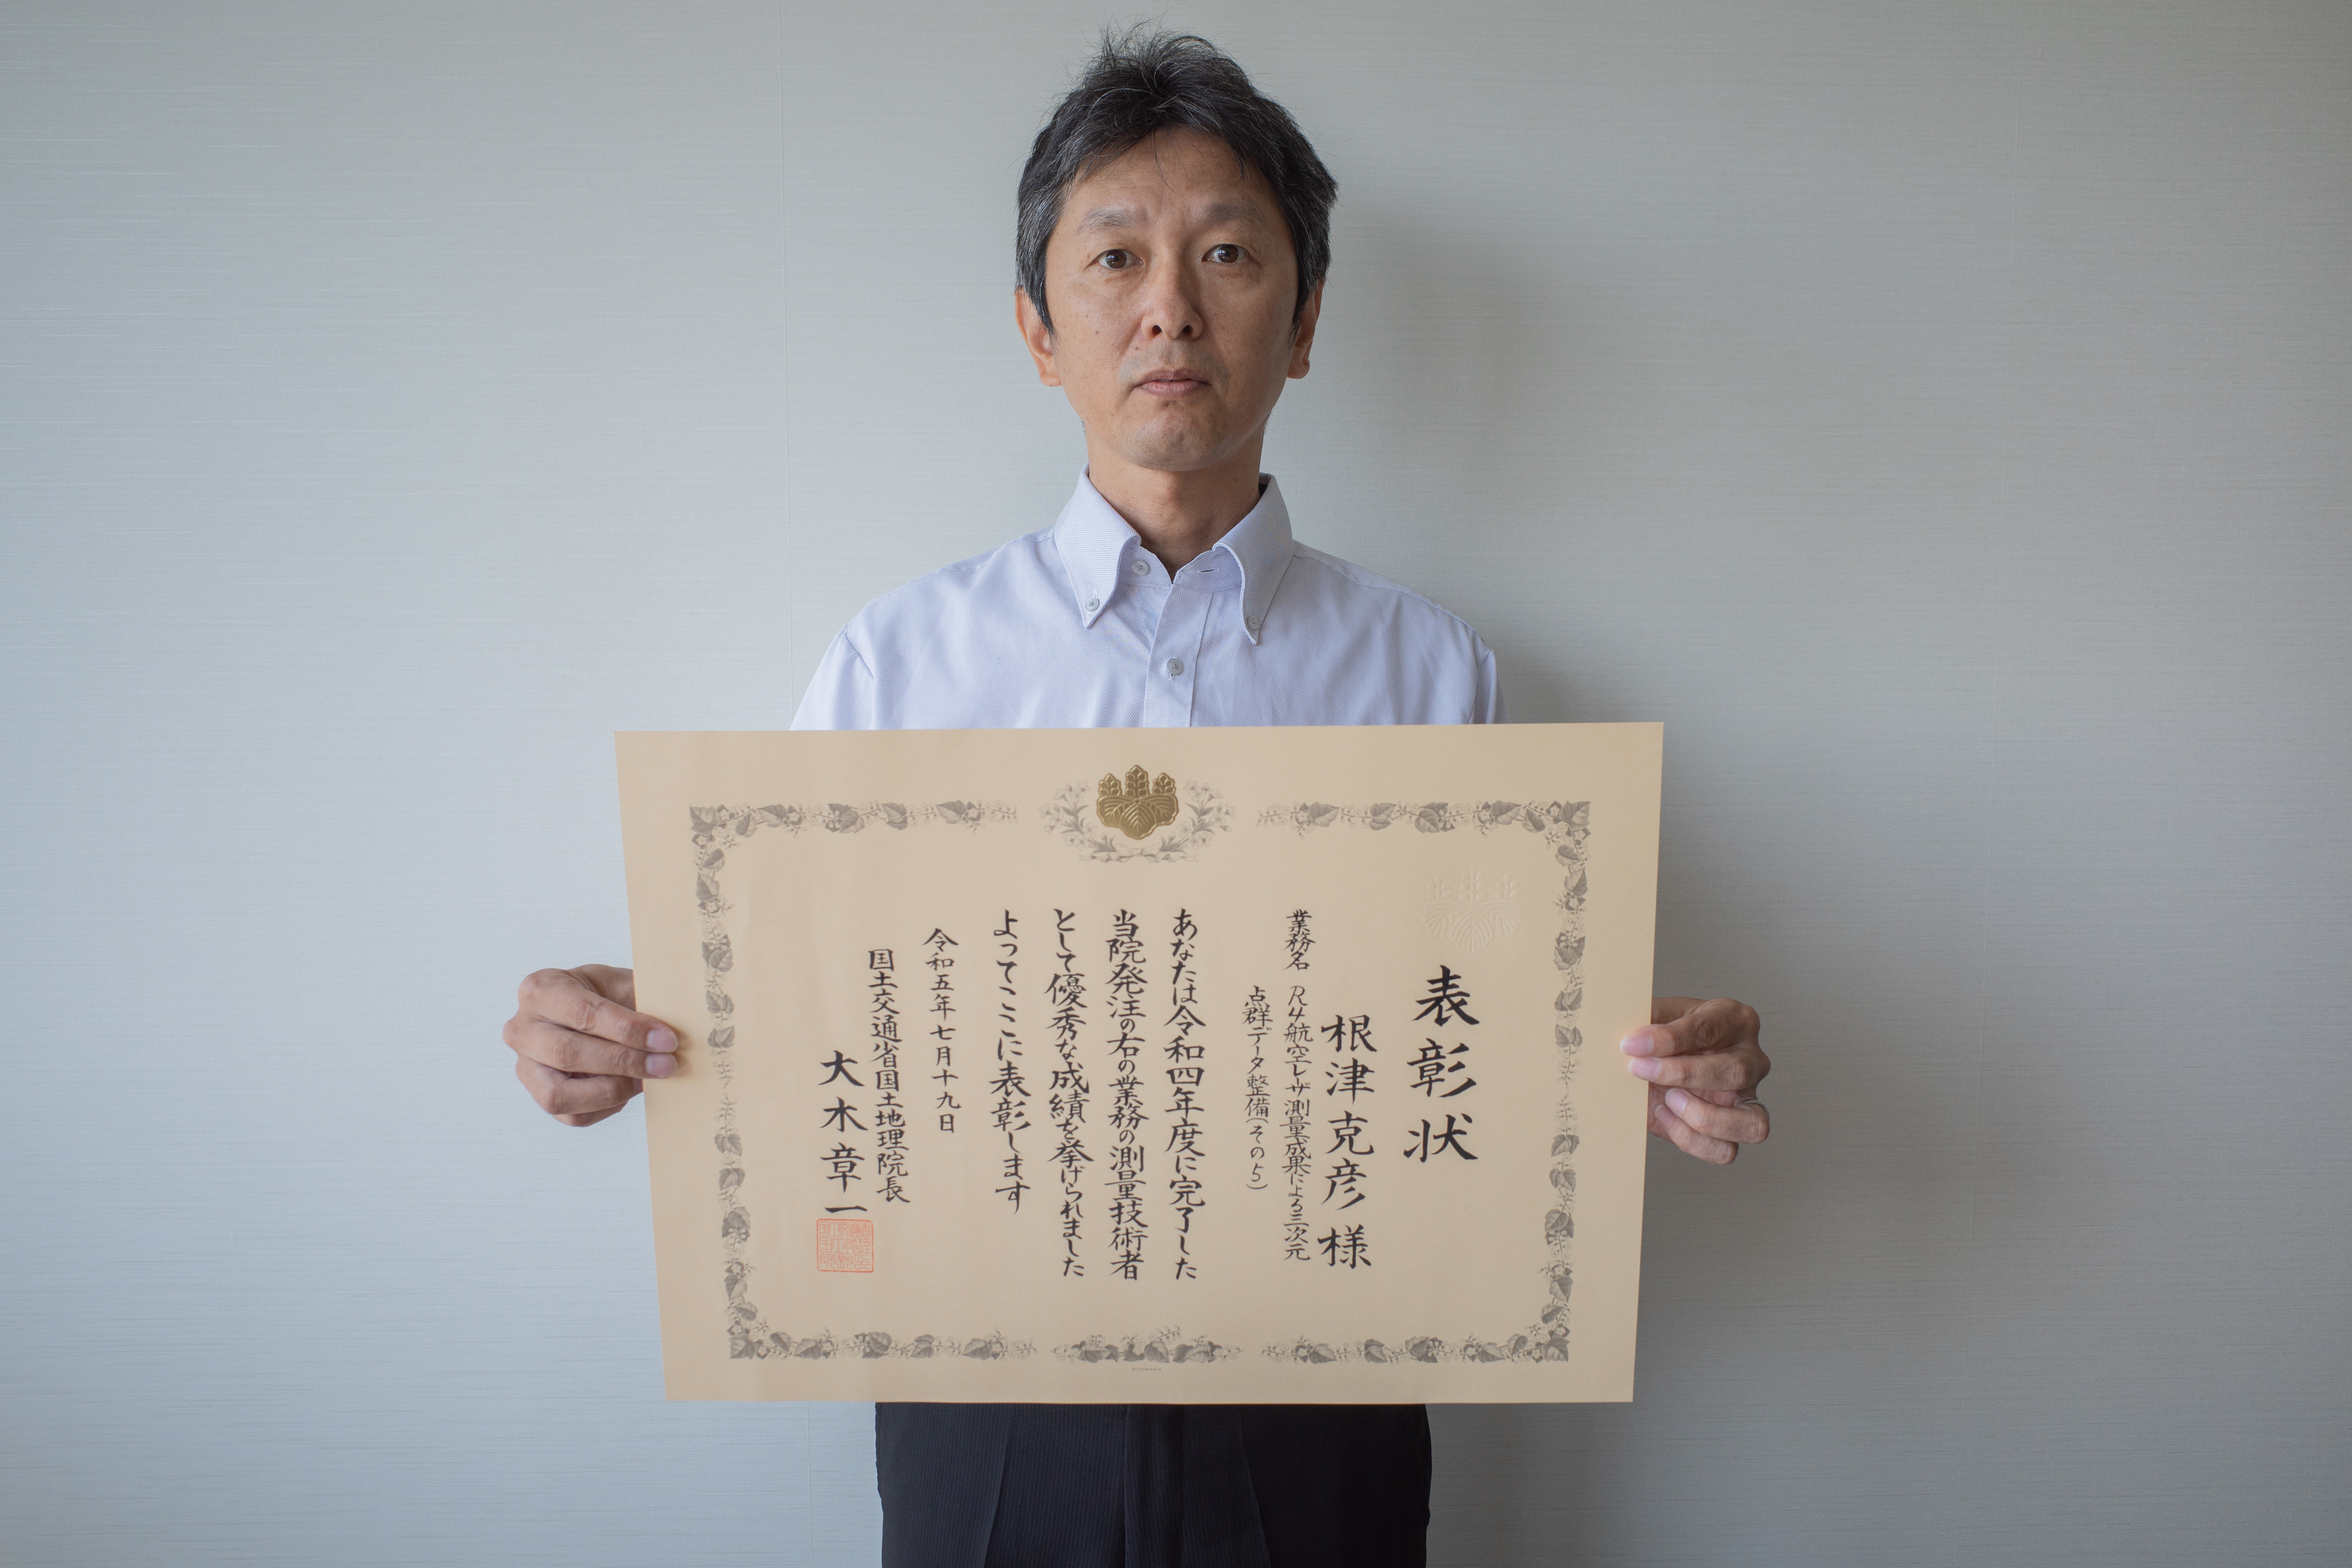 表彰状
根津克彦様
業務名 R4航空レーザ測量成果による三次元
点群データ整備(その5)
あなたは令和四年度に完了した
当院発注の右の業務の測量技術者
として優秀な成績を挙げられました
よってここに表彰します
令和五年七月十九日
国土交通省国土地理院長
大木章一